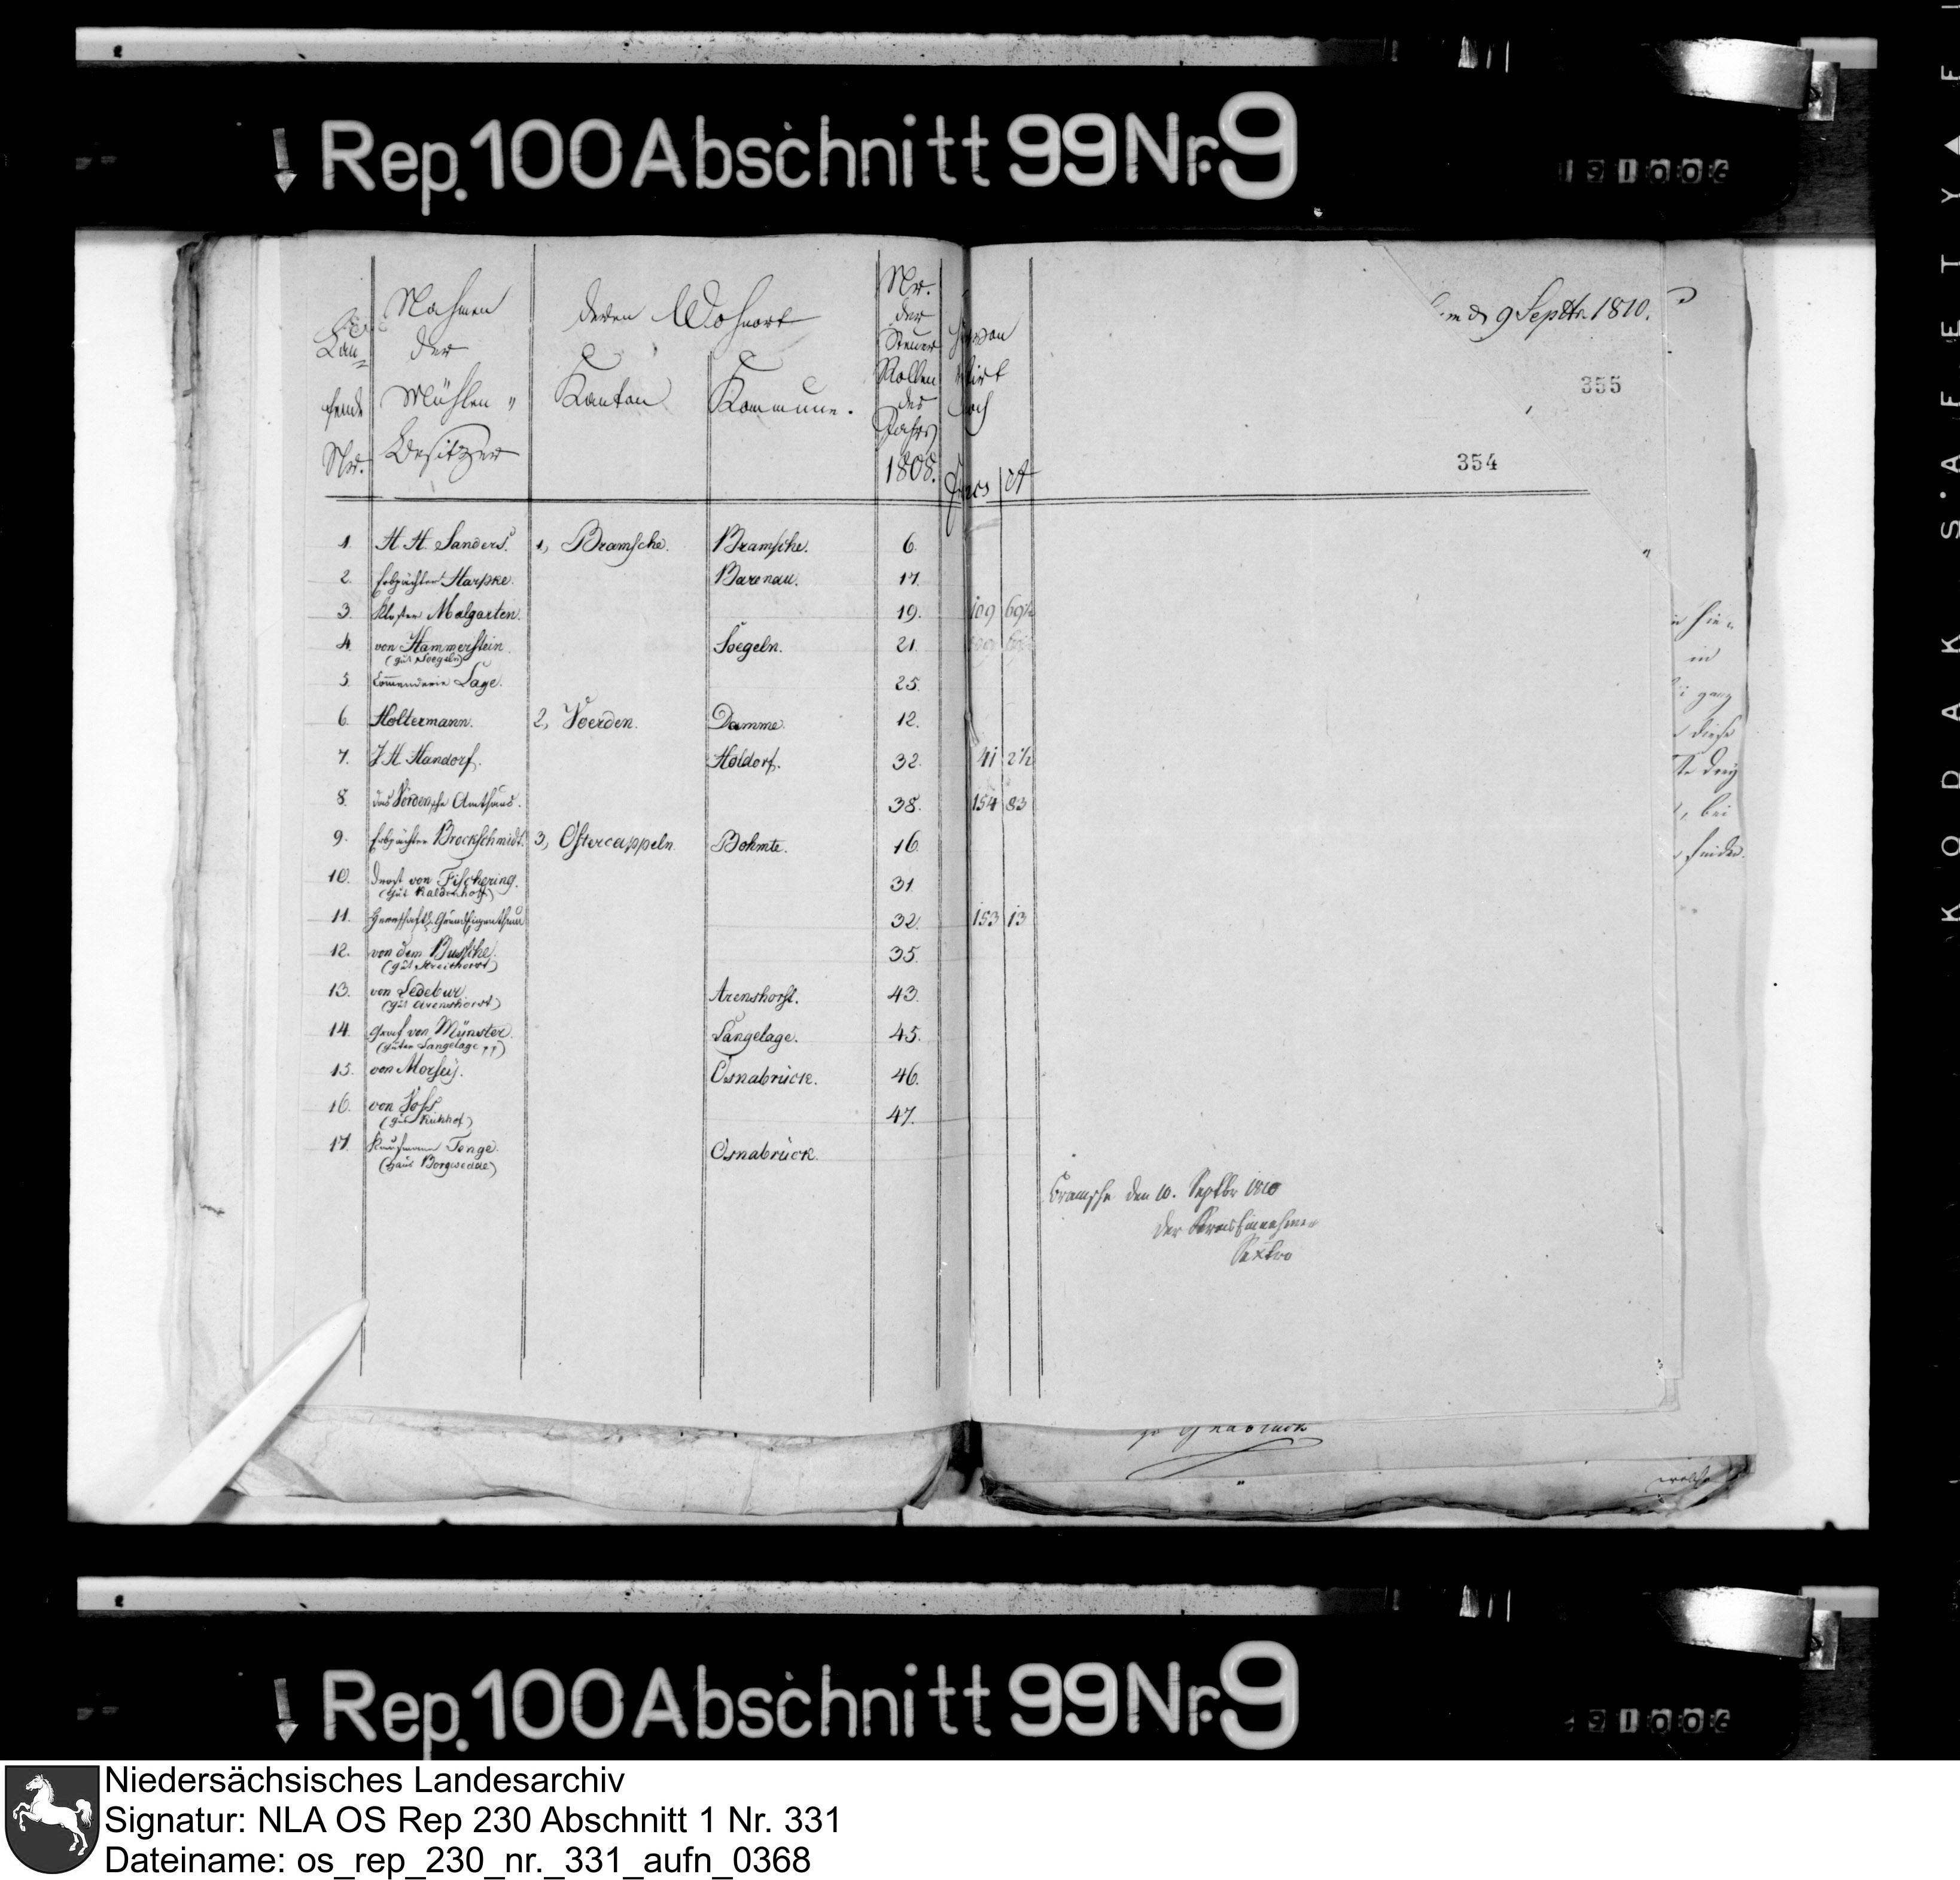 Rep. 100 Abschnitt 99 Nr. 9
191006
Lau=
fende
Nr.
Nahmen
der
Mühlen "
Besitzer
deren Wohnort
Kanton
Kommune.
Nr.
der
Steuer
Rollen
des
Jahrs
1808.
Hievon
noch
Frcs Ct
9 Septbr. 1810.
355
354
1. H. H. Sanders. 1, Bramsche. Bramsche. 6.
2. Erbpächter Harpke. Barenau. 17.
3. Kloster Malgarten. 19. 109 69½
4. von Hammerstein. Soegeln. 21.
(gut Soegeln)
5. Commenderie Lage. 25.
6. Holtermann. 2, Voerden. Damme. 12.
7. J. H. Handorf. Holdorf. 32. 41 2½
8. das Vördensche Amthaus. 38. 154 83
9. Erbpächter Brockschmidt. 3, Ostercappeln. Bohmte. 16.
10. Drost von Fischering. 31.
11. 32. 153 13
12. von dem Bussche. 35.
(gut Streithorst)
13. von Ledebur Arenshorst. 43.
(gut Arenshorst)
14. Graf von Münster. Langelage. 45.
(güter Langelage pp)
15. von Morsey. Osnabrück. 46.
16. von Voss 47.
17. Kaufmann Tenge. Osnabrück.
(Haus Borgwedde)
in
diese
bei
Bramsche den 10. Septbr 1810
Der
Sextro
Osnabrück
welche
Rep. 100 Abschnitt 99 Nr. 9
91006
KODAK S.AFETY
Niedersächsisches Landesarchiv
Signatur: NLA OS Rep 230 Abschnitt 1 Nr. 331
Dateiname: os_rep_230_nr._331_aufn_0368